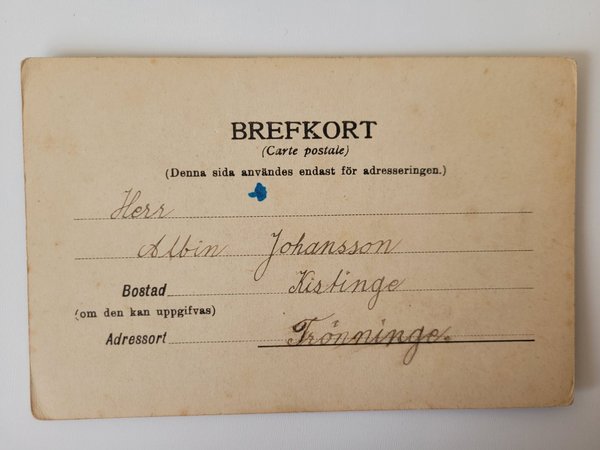 BREFKORT
(Carte postale)
(Denna sida användes endast för adresseringen.)
Herr
Albin Johansson
Bostad Kistinge
(om den kan uppgifvas)
Adressort Trönninge.